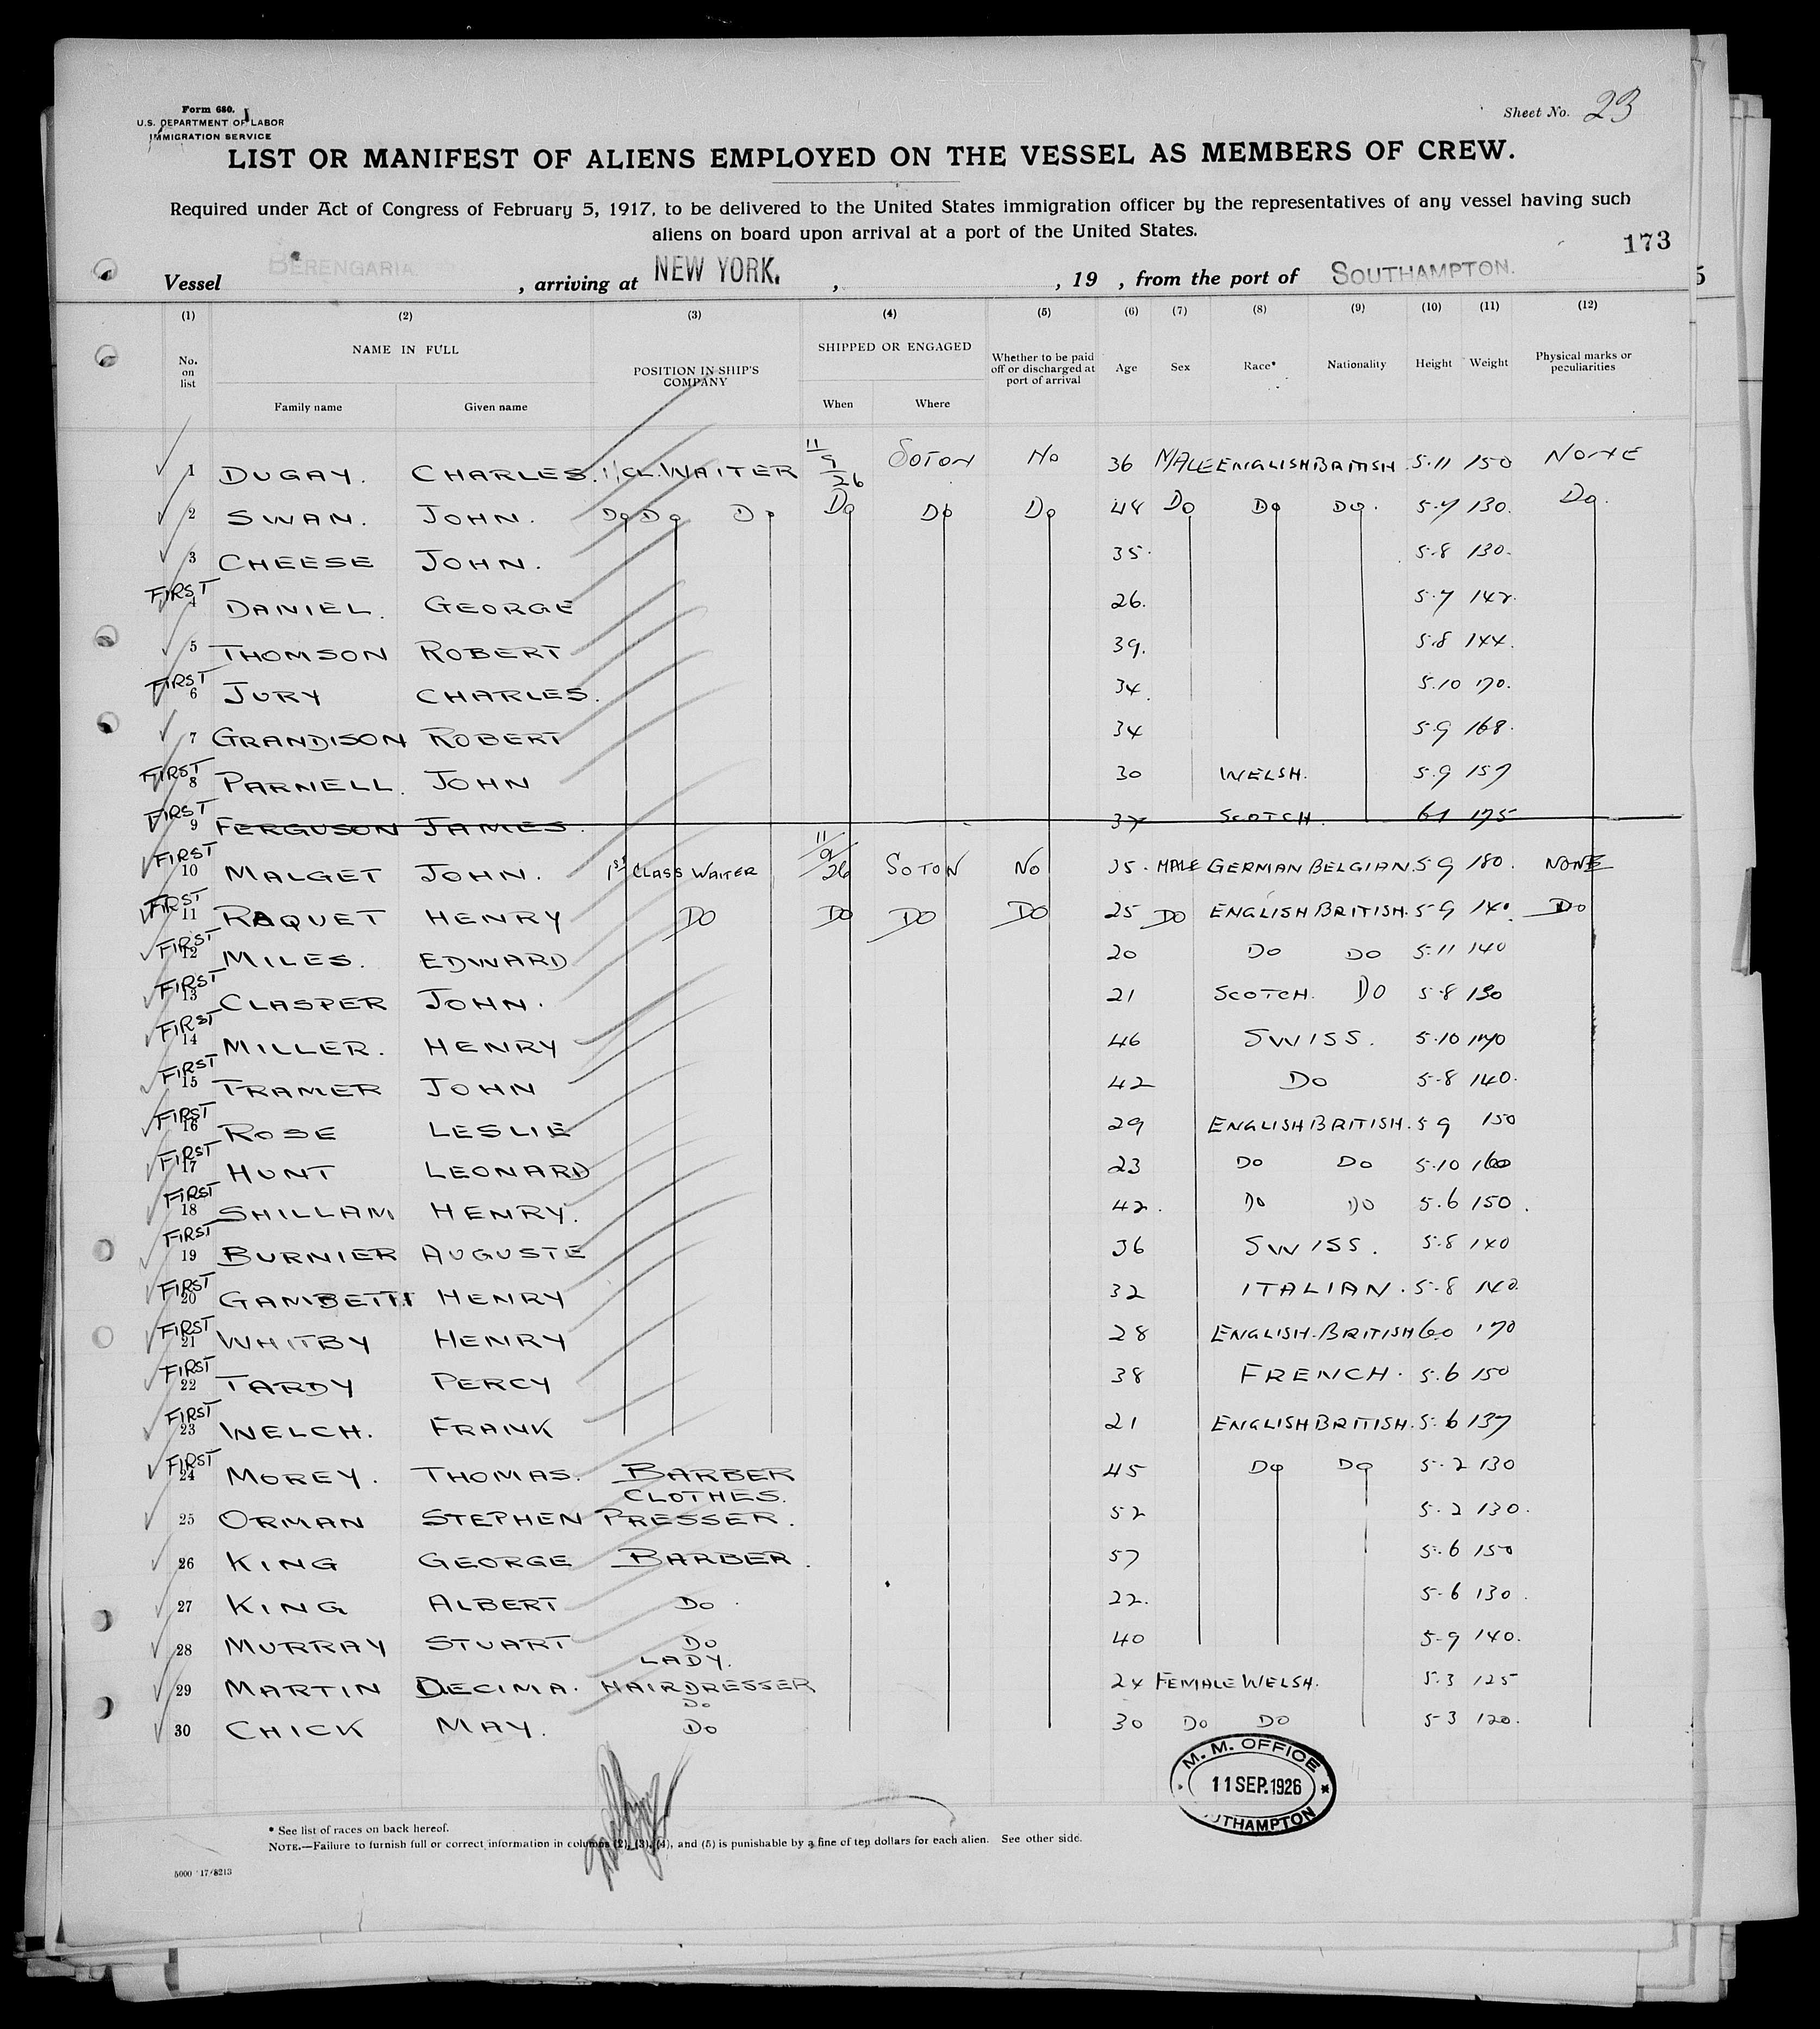 Form 680.
U.S. DEPARTMENT OF LABOR
IMMIGRATION SERVICE
Sheet No. 23
LIST OR MANIFEST OF ALIENS EMPLOYED ON THE VESSEL AS MEMBERS OF CREW.
Required under Act of Congress of February 5, 1917, to be delivered to the United States immigration officer by the representatives of any vessel having such
aliens on board upon arrival at a port of the United States.
173
Vessel BERENGARIA , arriving at NEW YORK. , , 19 , from the port of SOUTHAMPTON.
5
(1) (2) (3) (4) (5) (6) (7) (8) (9) (10) (11) (12)
No. on list NAME IN FULL POSITION IN SHIP'S COMPANY SHIPPED OR ENGAGED Whether to be paid off or discharged at port of arrival Age Sex Race* Nationality Height Weight Physical marks or peculiarities
Family name Given name When Where
1 DUGAY. CHARLES. 1/CL. WAITER 11/9/26 SOTON No 36 MALE ENGLISH BRITISH 5.11 150 NONE
2 SWAN. JOHN. Do Do Do Do Do Do 48 Do Do Do. 5.7 130. Do.
3 CHEESE JOHN. 35. 5.8 130.
FIRST 4 DANIEL. GEORGE 26. 5.7 142.
5 THOMSON ROBERT 39. 5.8 144.
FIRST 6 JURY CHARLES. 34. 5.10 170.
7 GRANDISON ROBERT 34 5.9 168.
FIRST 8 PARNELL. JOHN 30 WELSH. 5.9 157
FIRST 9 FERGUSON JAMES. SCOTCH. 61 175
FIRST 10 MALGET JOHN. 1st CLASS WAITER 11/9/26 SOTON No 35. MALE GERMAN BELGIAN. 5 9 180. NONE
FIRST 11 RAQUET HENRY DO DO DO DO 25 DO ENGLISH BRITISH. 5 9 140. DO
FIRST 12 MILES. EDWARD 20 DO DO 5.11 140
FIRST 13 CLASPER JOHN. 21 SCOTCH. DO 5.8 130
FIRST 14 MILLER. HENRY 46 SWISS. 5.10
FIRST 15 TRAMER JOHN 42 DO 5.8 140.
FIRST 16 ROSE LESLIE 29 ENGLISH BRITISH. 5 9 150
FIRST 17 HUNT LEONARD 23 DO DO 5.10 160
FIRST 18 SHILLAM HENRY. 42. DO DO 5.6 150.
FIRST 19 BURNIER AUGUSTE 36 SWISS. 5.8 140
FIRST 20 GAMBETTI HENRY 32 ITALIAN. 5.8 140.
FIRST 21 WHITBY HENRY 28 ENGLISH. BRITISH 6.0 170
FIRST 22 TARDY PERCY 38 FRENCH. 5.6 150
FIRST 23 WELCH. FRANK 21 ENGLISH BRITISH. 5.6 137
FIRST 24 MOREY. THOMAS. BARBER 45 Do Do 5.2 130
25 ORMAN STEPHEN CLOTHES. PRESSER. 52 5.2 130.
26 KING GEORGE BARBER. 57 5.6 150
27 KING ALBERT DO. 22. 5.6 130.
28 MURRAY STUART DO 40 5.9 140.
29 MARTIN DECIMA. LADY. HAIRDRESSER 24 FEMALE WELSH. 5.3 125
30 CHICK MAY. Do Do 30 DO DO 5 3 120.
M. M. OFFICE
11 SEP. 1926
SOUTHAMPTON
* See list of races on back hereof.
NOTE.—Failure to furnish full or correct information in columns (2), (3), (4), and (5) is punishable by a fine of ten dollars for each alien. See other side.
5000 17/8213